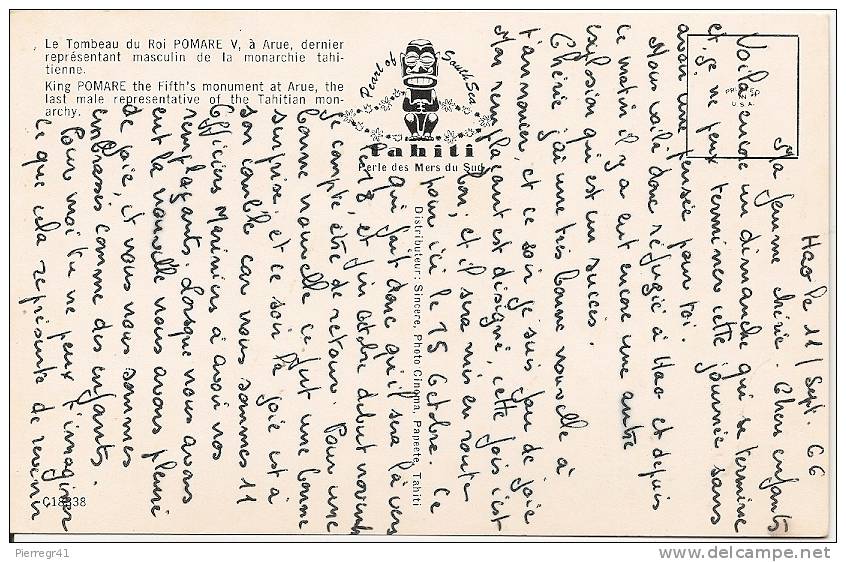 Le Tombeau du Roi POMARE V, à Arue, dernier
représentant masculin de la monarchie tahi-
tienne.
King POMARE the Fifth's monument at Arue, the
last male representative of the Tahitian mon-
archy.
Pearl of South Sea
tahiti
Perle des Mers du Sud
PRINTED
IN
U.S.A.
Distributeur: Sincere, Photo Cinema, Papeete, Tahiti
C18838
Hao le 11/Sept. 66
Ma femme chérie. Chers enfants
Voilà encore un dimanche qui se termine
et je ne peux terminer cette journée sans
avoir une pensée pour toi.
Nous voilà donc réfugié à Hao et depuis
ce matin il y a eut encore une autre
explosion qui est un succès.
Chérie j'ai une très bonne nouvelle à
t'annoncer, et ce soir je suis fou de joie
Mon remplaçant est désigné, cette fois c'est
bon, et il sera mis en route
pour ici le 15 Octobre. Ce
qui fait donc qu'il sera là vers
le et fin octobre début novemb
je compte être de retour. Pour une
bonne nouvelle ce fut une bonne
surprise, et ce soir la joie est à
son comble car nous sommes 11
Officiers Mariniers à avoir nos
remplaçants. Lorsque nous avons
eut la nouvelle nous avons pleuré
de joie, et nous nous sommes
embrassés comme des enfants.
Pour moi tu ne peux t'imaginer
ce que cela représente de revenir
Pierregr41
delcampe.net